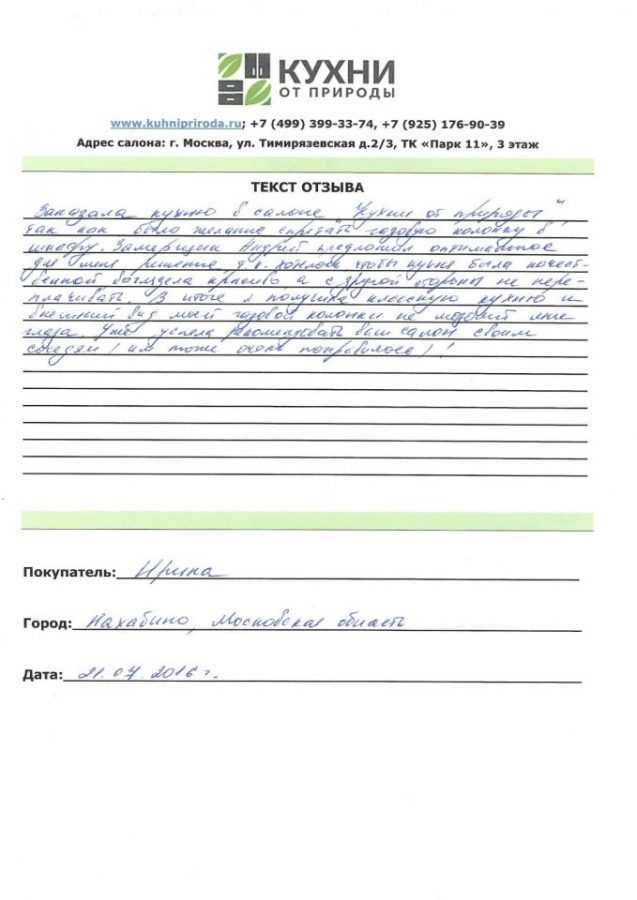 КУХНИ
ОТ ПРИРОДЫ
www.kuhnipriroda.ru; +7 (499) 399-33-74, +7 (925) 176-90-39
Адрес салона: г. Москва, ул. Тимирязевская д.2/3, ТК «Парк 11», 3 этаж
ТЕКСТ ОТЗЫВА
Заказала кухню в салоне "Кухни от природы"
так как было желание спрятать газовую колонку в
шкафу. Замерщик Андрей предложил оптимальное
для меня решение т.к. хотелось чтобы кухня была качест-
венной выглядела красиво, а с другой стороны не пере-
плачивать. В итоге я получила классную кухню и
внешний вид моей газовой колонки не мозолит мне
глаза. Уже успела рекомендовать ваш салон своим
соседям, им тоже очень понравилось!!
Покупатель: Ирина
Город: Нахабино, Московская область
Дата: 21.07.2016 г.